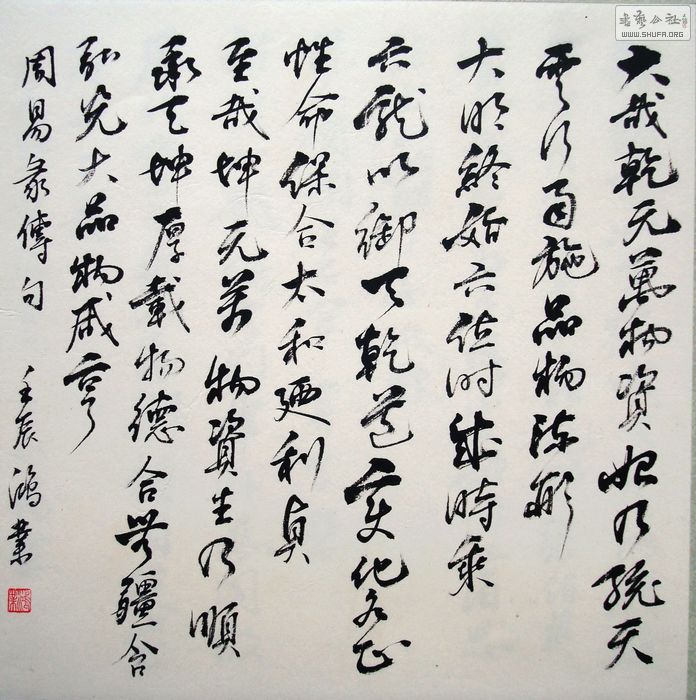 大哉乾元萬物資始乃統天
雲行雨施品物流形
大明終始六位时成時乘
六龍以御天乾道變化各正
性命保合太和廼利貞
至哉坤元萬物資生乃順
承天坤厚載物德合無疆含
弘光大品物咸亨
周易彖傳句
壬辰鴻業
書藝公社
WWW.SHUFA.ORG